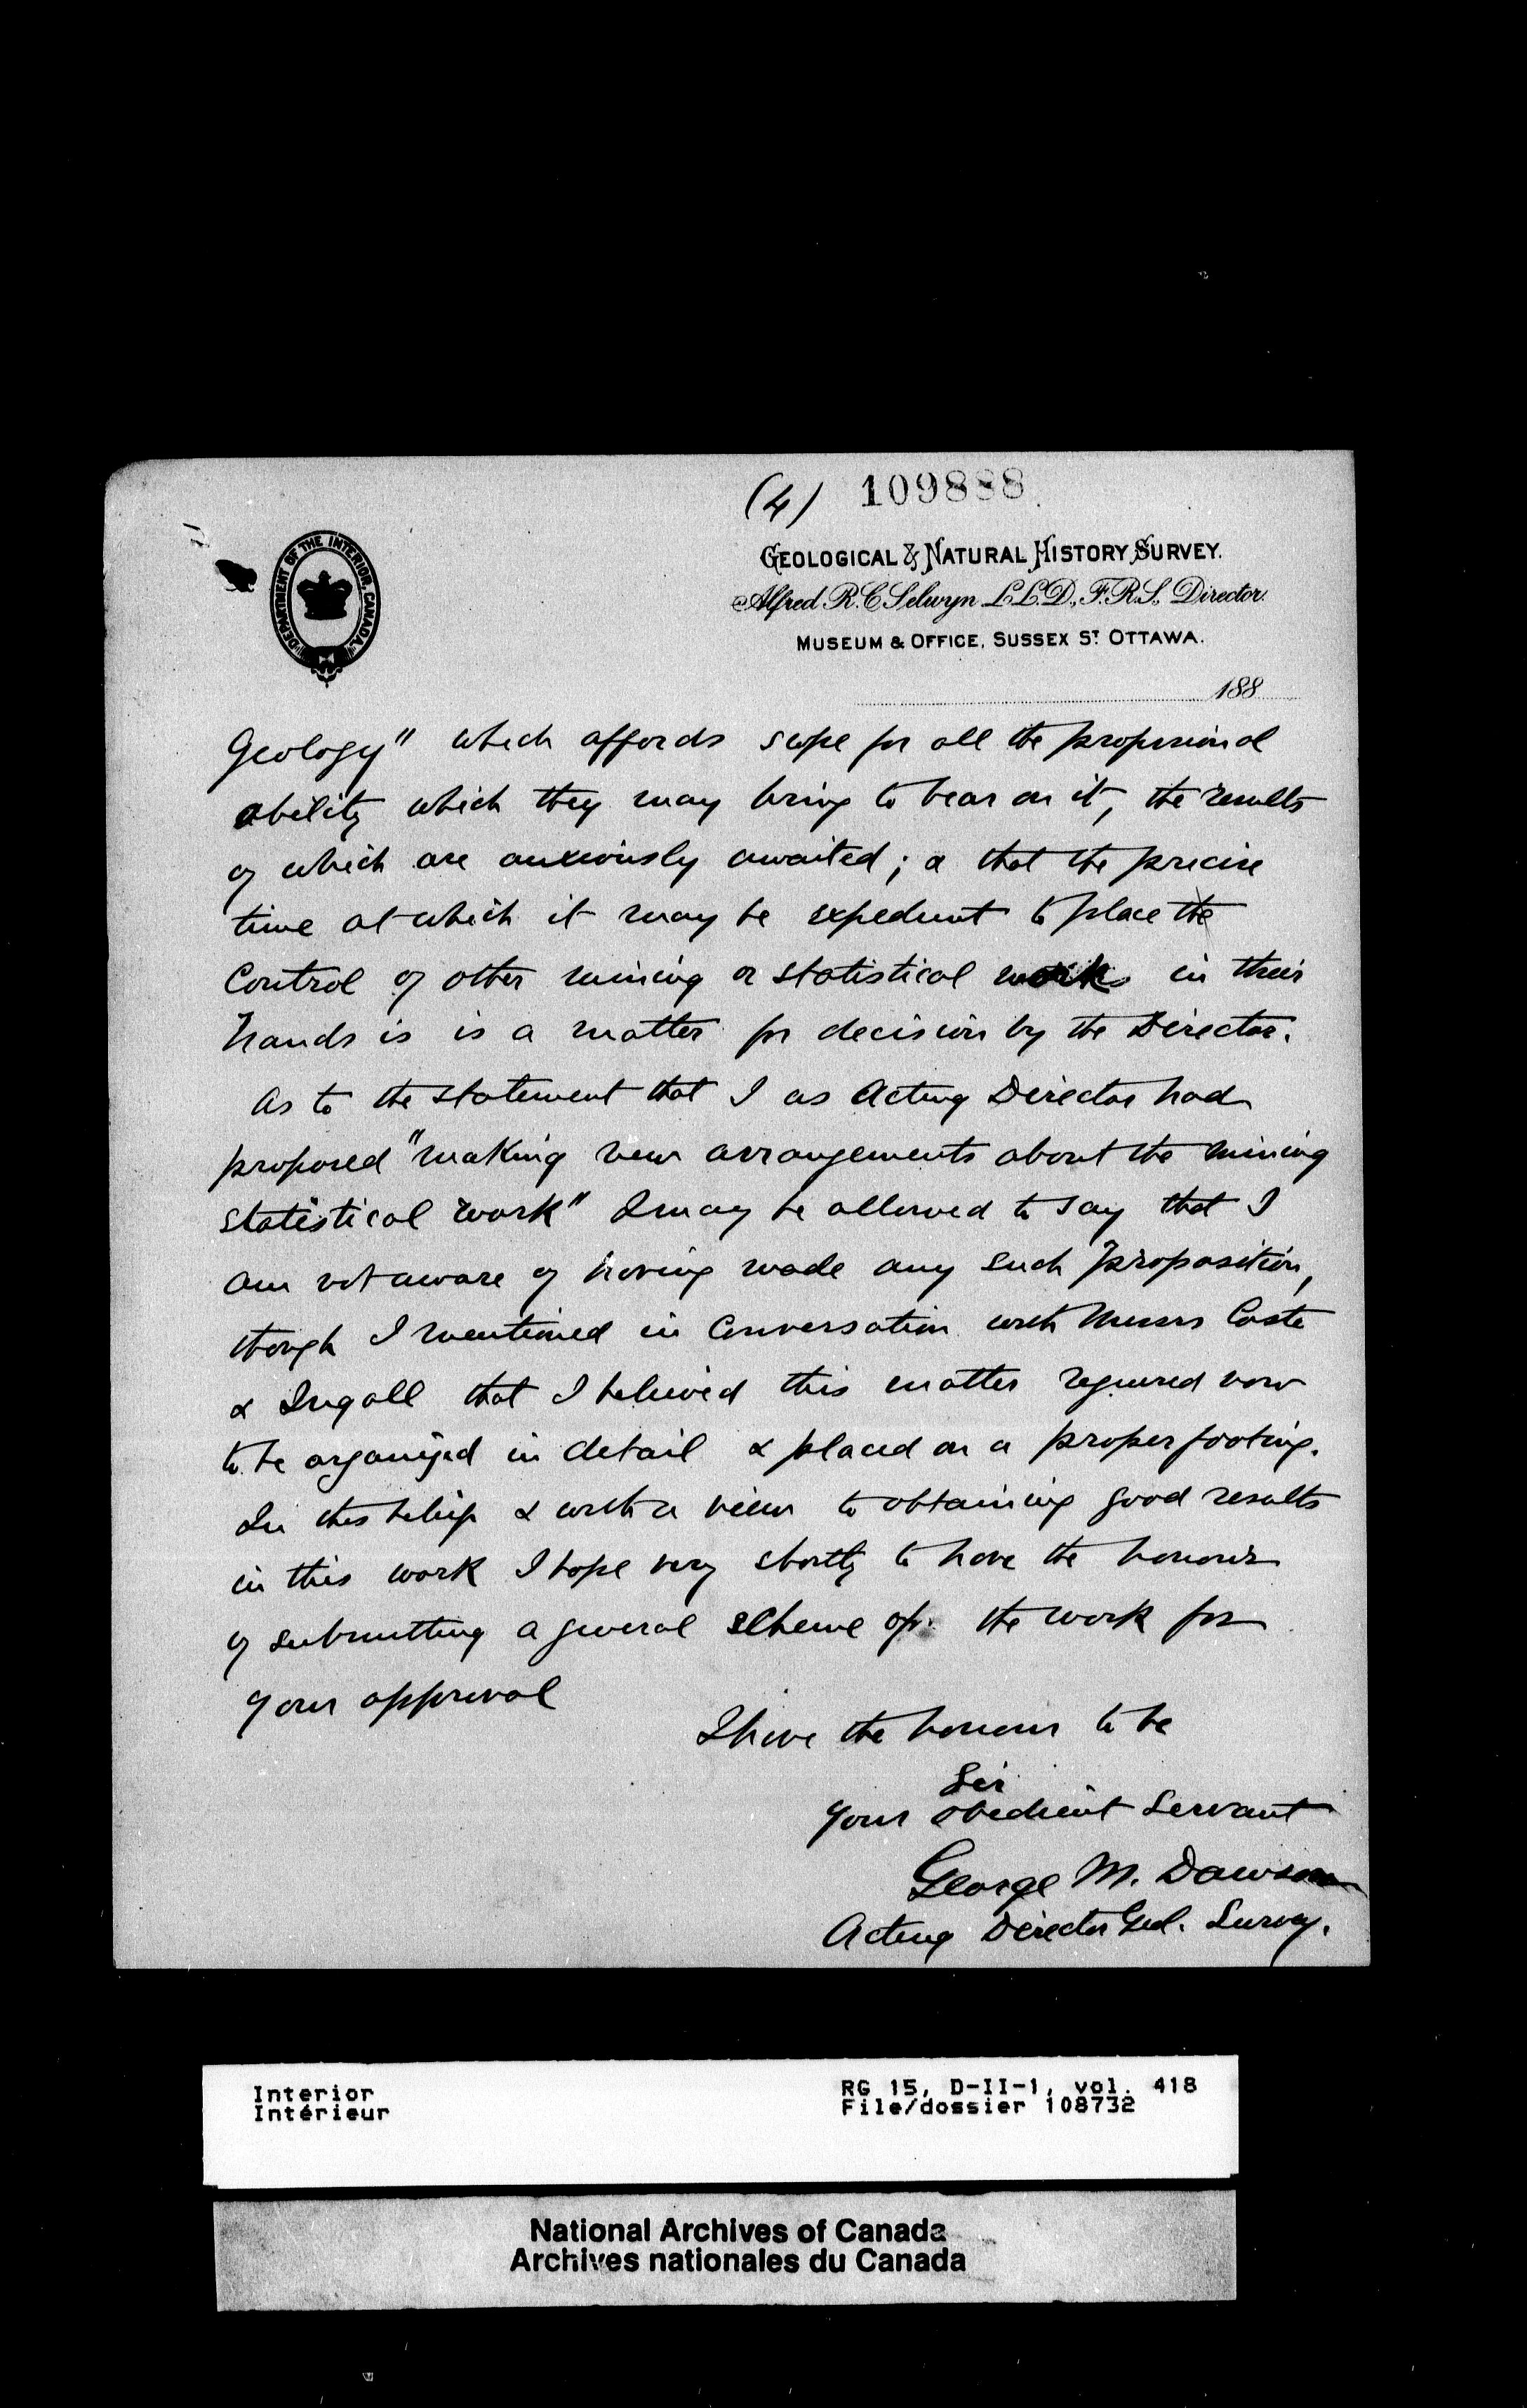 (4) 109888
DEPARTMENT OF THE INTERIOR, CANADA.
GEOLOGICAL & NATURAL HISTORY SURVEY.
Alfred R. C. Selwyn LL.D., F.R.S., Director.
MUSEUM & OFFICE, SUSSEX ST OTTAWA.
188
Geology" which affords scope for all the professional
ability which they may bring to bear on it, the results
of which are anxiously awaited; & that the precise
time at which it may be expedient to place the
Control of other mining or statistical works in their
hands is is a matter for decision by the Director.
As to the statement that I as Acting Director had
proposed "making new arrangements about the mining
statistical work" I may be allowed to say that I
am not aware of having made any such proposition,
though I mentioned in Conversation with Messrs Coste
& Ingall that I believed this matter required now
to be organized in detail & placed on a proper footing.
In this belief & with a view to obtaining good results
in this work I hope very shortly to have the honour
of submitting a general scheme of the work for
your approval
I have the honour to be
Sir
Your obedient Servant
George M. Dawson
Acting Director Geol. Survey.
Interior
Intérieur
RG 15, D-II-1, vol. 418
File/dossier 108732
National Archives of Canada
Archives nationales du Canada